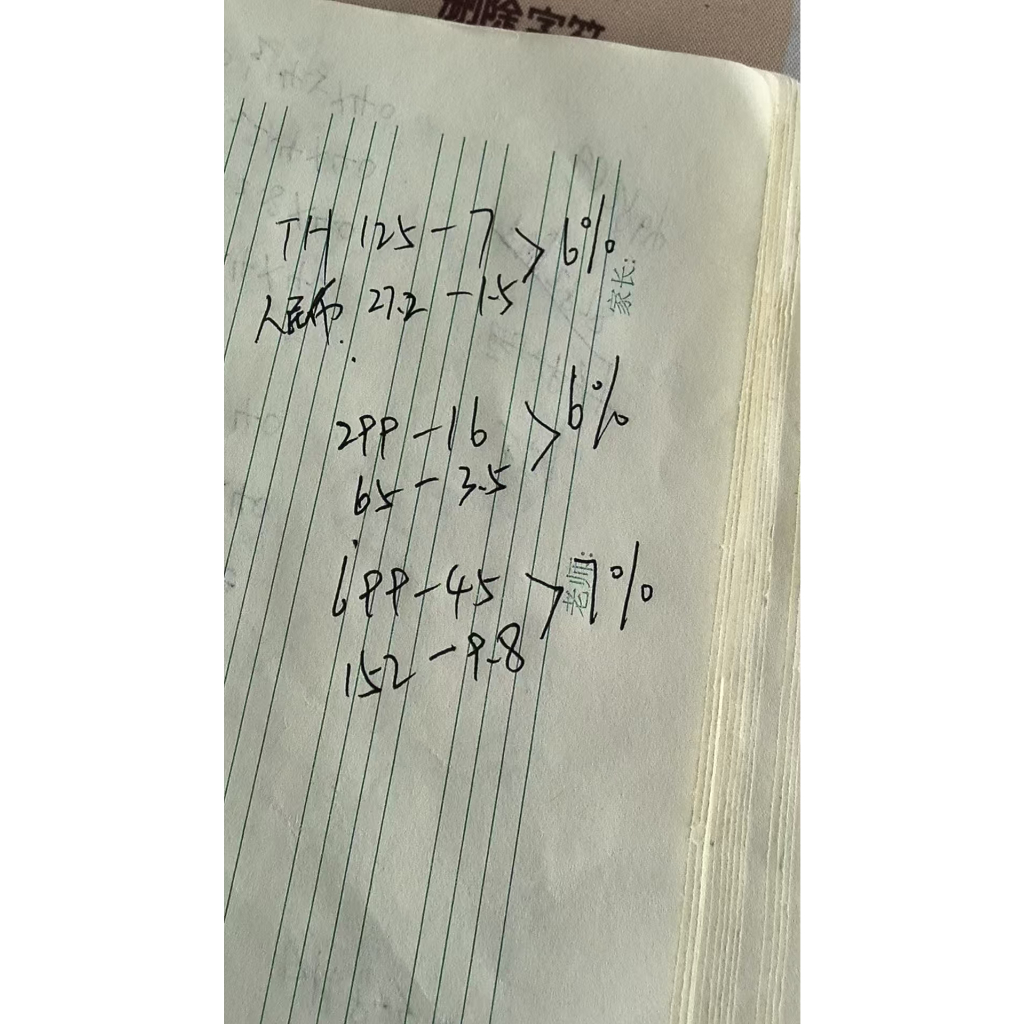 删除字符
TH 125-7 > 6%
家长:
人民币 27.2-1.5
299-16 > 6%
65-3.5
699-45 > 7%
老师:
152-9.8